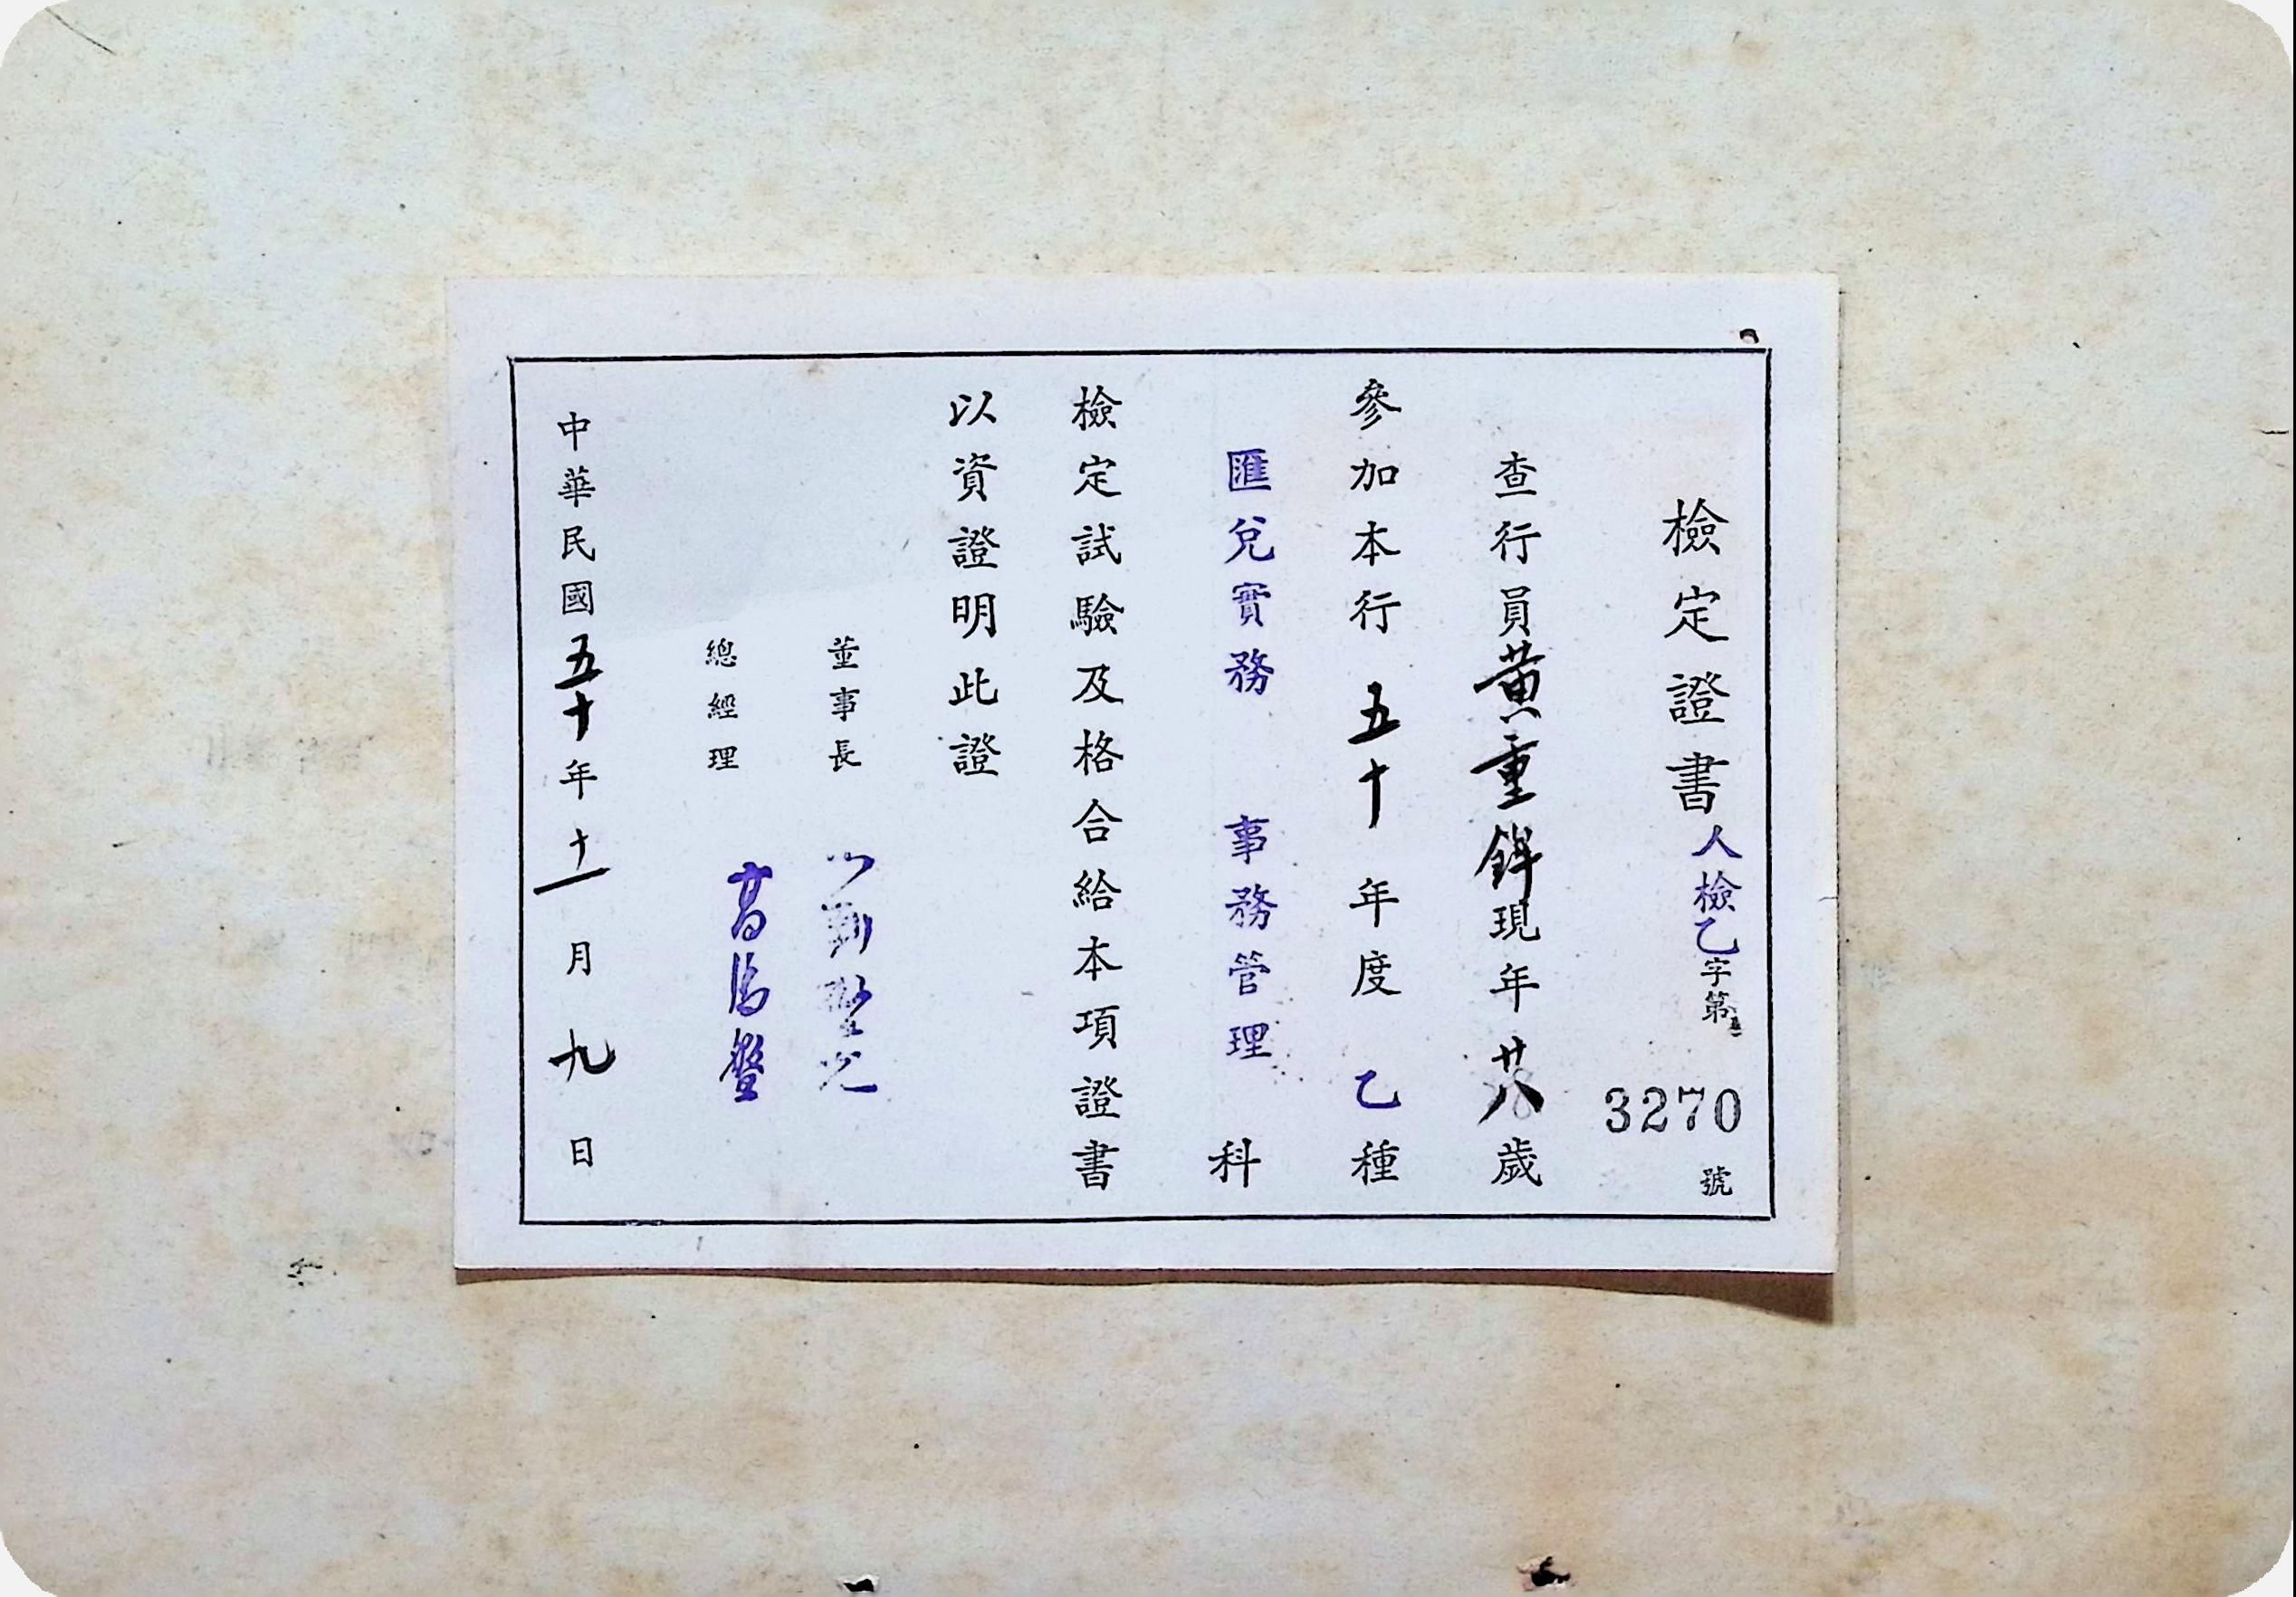 檢定證書人檢乙字第3270號
查行員黃重鉾現年廿八歲
參加本行五十年度乙種
匯兌實務 事務管理科
檢定試驗及格合給本項證書
以資證明此證
董事長
總經理 高湯盤
中華民國五十年十一月九日